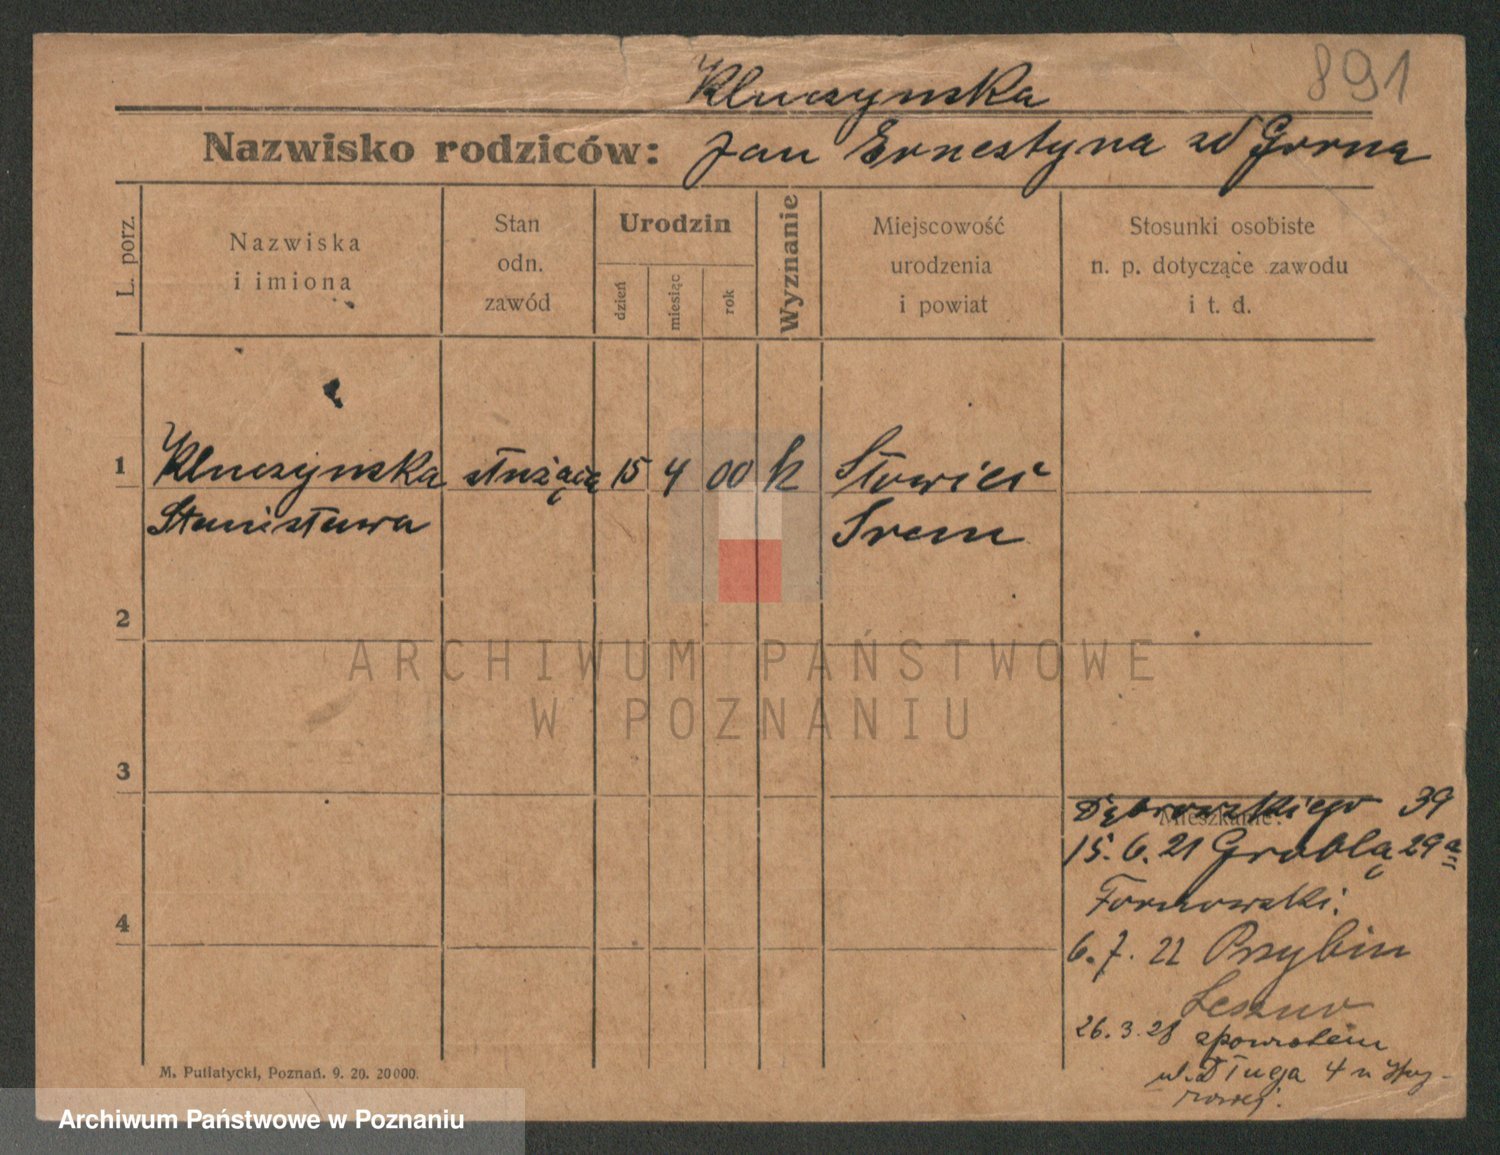 891
Kluczynska
Nazwisko rodziców: Jan Ernestyna zd Gorna
L. porz.
Nazwiska
i imiona
Stan
odn.
zawód
Urodzin
dzień
miesiąc
rok
Wyznanie
Miejscowość
urodzenia
i powiat
Stosunki osobiste
n. p. dotyczące zawodu
i t. d.
1 Kluczynska służąca 15 4 00 k
Stanisława Srem
2
ARCHIWUM PAŃSTWOWE
W POZNANIU
3
Dąbrowskiego 39
Mieszkanie:
15. 6. 21 Groblą 29a
4
6. 7. 22 Przybin
Leszno
26. 3. 28 zpowrotem
ul. Długa 4 u
M. Putiatycki, Poznań. 9. 20. 20000.
Archiwum Państwowe w Poznaniu